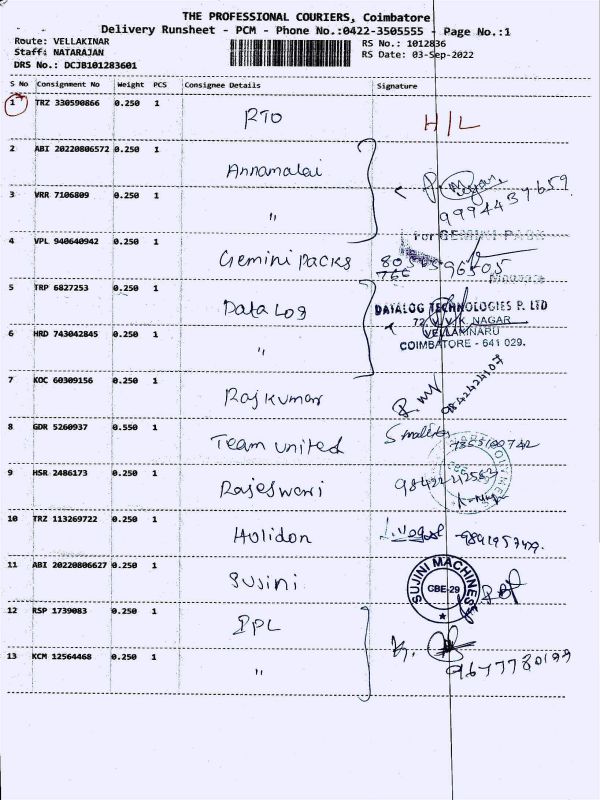 THE PROFESSIONAL COURIERS, Coimbatore
Delivery Runsheet - PCM - Phone No.:0422-3505555 - Page No.:1
Route: VELLAKINAR RS No.: 1012836
Staff: NATARAJAN RS Date: 03-Sep-2022
DRS No.: DCJB101283601
S No Consignment No Weight PCS Consignee Details Signature
1 TRZ 330590866 0.250 1 RTO H/L
2 ABI 20220806572 0.250 1 Annamalai
3 VRR 7106809 0.250 1 " 9994437659
4 VPL 940640942 0.250 1 Gemini packs For GEMINI PACK
5 TRP 6827253 0.250 1 Data Log DATALOG TECHNOLOGIES P. LTD
72, V.V.K. NAGAR
6 HRD 743042845 0.250 1 " VELLAMNARU
COIMBATORE - 641 029.
7 KOC 60309156 0.250 1 Rajkumar 9842424107
8 GDR 5260937 0.550 1 Team united
9 HSR 2486173 0.250 1 Rajeswari
10 TRZ 113269722 0.250 1 Holidon
11 ABI 20220806627 0.250 1 Sujini SUJINI MACHINES CBE-29
12 RSP 1739083 0.250 1 IPL
13 KCM 12564468 0.250 1 " 9677780199